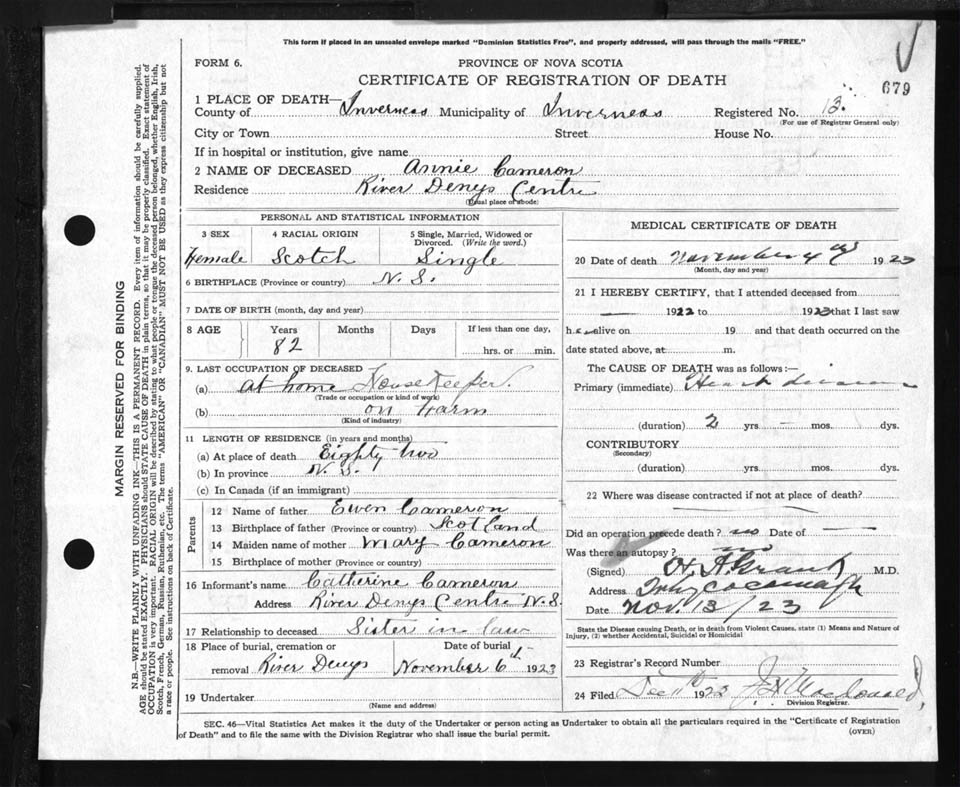 This form if placed in an unsealed envelope marked "Dominion Statistics Free", and properly addressed, will pass through the mails "FREE."
FORM 6. PROVINCE OF NOVA SCOTIA
CERTIFICATE OF REGISTRATION OF DEATH 679
1 PLACE OF DEATH—
County of Inverness Municipality of Inverness Registered No. 13.
(For use of Registrar General only)
City or Town Street House No.
If in hospital or institution, give name
2 NAME OF DECEASED Annie Cameron
Residence River Denys Centre
(Usual place of abode)
MARGIN RESERVED FOR BINDING
N.B.—WRITE PLAINLY WITH UNFADING INK—THIS IS A PERMANENT RECORD. Every item of information should be carefully supplied.
AGE should be stated EXACTLY. PHYSICIANS should STATE CAUSE OF DEATH in plain terms, so that it may be properly classified. Exact statement of
OCCUPATION is very important. RACIAL ORIGIN will be described by stating to what people or tongue the deceased person belonged, whether English, Irish,
Scotch, French, German, Russian, Ruthenian, etc. The terms "AMERICAN" OR "CANADIAN" MUST NOT BE USED as they express citizenship but not
a race or people. See instructions on back of Certificate.
PERSONAL AND STATISTICAL INFORMATION
3 SEX 4 RACIAL ORIGIN 5 Single, Married, Widowed or
Divorced. (Write the word.)
Female Scotch Single
6 BIRTHPLACE (Province or country) N. S.
7 DATE OF BIRTH (month, day and year)
8 AGE Years Months Days If less than one day,
82 hrs. or min.
9. LAST OCCUPATION OF DECEASED
(a) at home Housekeeper.
(Trade or occupation or kind of work)
(b) on Farm
(Kind of industry)
11 LENGTH OF RESIDENCE (in years and months)
(a) At place of death Eighty two
(b) In province N. S.
(c) In Canada (if an immigrant)
Parents
12 Name of father Ewen Cameron
13 Birthplace of father (Province or country) Scotland
14 Maiden name of mother Mary Cameron
15 Birthplace of mother (Province or country)
16 Informant's name Catherine Cameron
Address River Denys Centre N. S.
17 Relationship to deceased Sister in law
18 Place of burial, cremation or Date of burial
removal River Denys November 6th 1923
19 Undertaker
(Name and address)
MEDICAL CERTIFICATE OF DEATH
20 Date of death November 4 1923
(Month, day and year)
21 I HEREBY CERTIFY, that I attended deceased from
1922 to 1923 that I last saw
h alive on 19 and that death occurred on the
date stated above, at m.
The CAUSE OF DEATH was as follows:—
Primary (immediate) Heart disease
(duration) 2 yrs. – mos. dys.
CONTRIBUTORY
(Secondary)
(duration) yrs. mos. dys.
22 Where was disease contracted if not at place of death?
Did an operation precede death? no Date of —
Was there an autopsy? no
(Signed) Grant M.D.
Address
Date Nov. 13/23
State the Disease causing Death, or in death from Violent Causes, state (1) Means and Nature of
Injury, (2) whether Accidental, Suicidal or Homicidal
23 Registrar's Record Number
24 Filed Dec 11th 1923 J. H. MacDonald
Division Registrar.
SEC. 46—Vital Statistics Act makes it the duty of the Undertaker or person acting as Undertaker to obtain all the particulars required in the "Certificate of Registration
of Death" and to file the same with the Division Registrar who shall issue the burial permit.
(OVER)